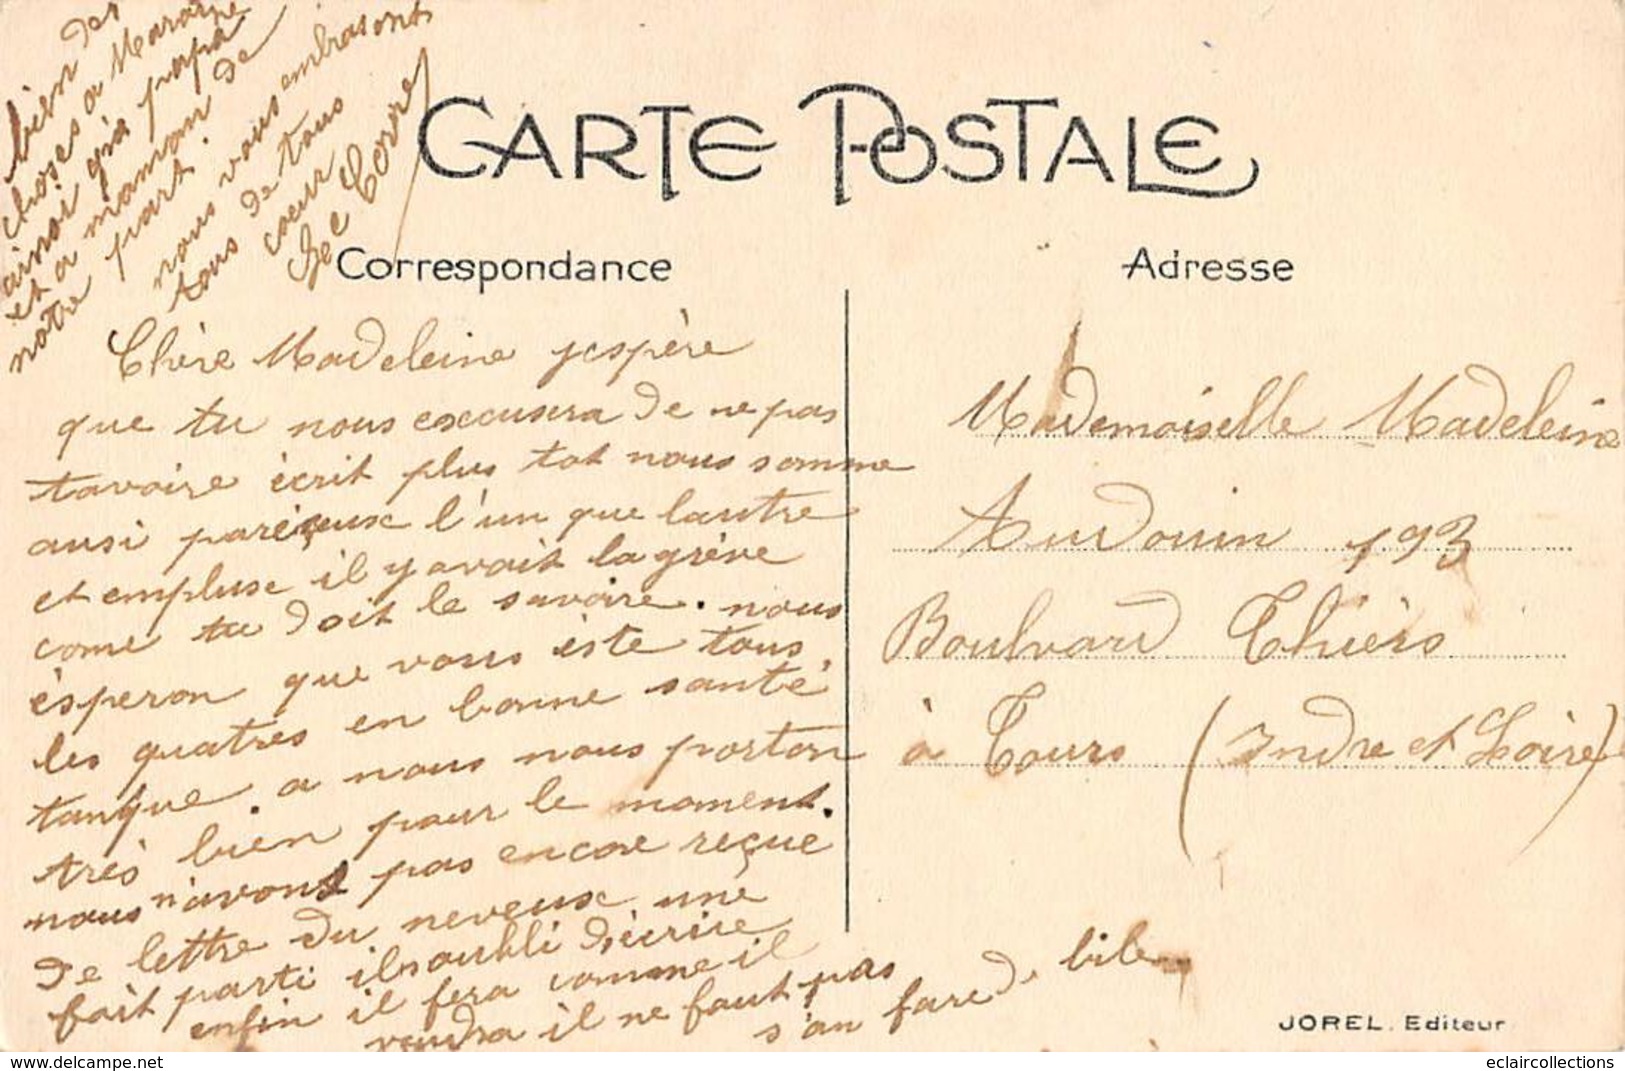 CARTE POSTALE
Correspondance
Adresse
Chère Madeleine jespère
que tu nous excusera de ne pas
tavoire écrit plus tot nous somme
ausi pareseux l'un que lautre
et emplusx il y avait la grève
come tu doit le savoire. nous
ésperon que vous éiste tous
les quatres en bonne santé
tanque a nous nous porton
très bien pour le moment.
nous n'avons pas encore reçue
de lettre du neveux une
fait parti ilsoubli d'écrire
enfin il fera comme il
voudra il ne faut pas
s'an fare de bile
bien des
choses a
ainsi qia papa
et a maman de
notre part.
nous vous embrasons
tous de tous
coeur
Le Corre
Mademoiselle Madeleine
Audouin 193
Boulvard Thiers
à Tours (Indre et Loire)
JOREL. Editeur
eclaircollections